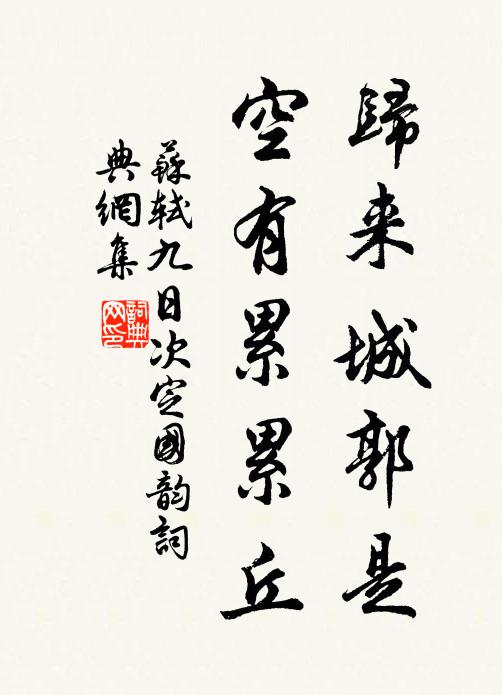 歸来城郭是
空有累累丘
蘇軾九日次定國韵詞
典網集
詞典網印